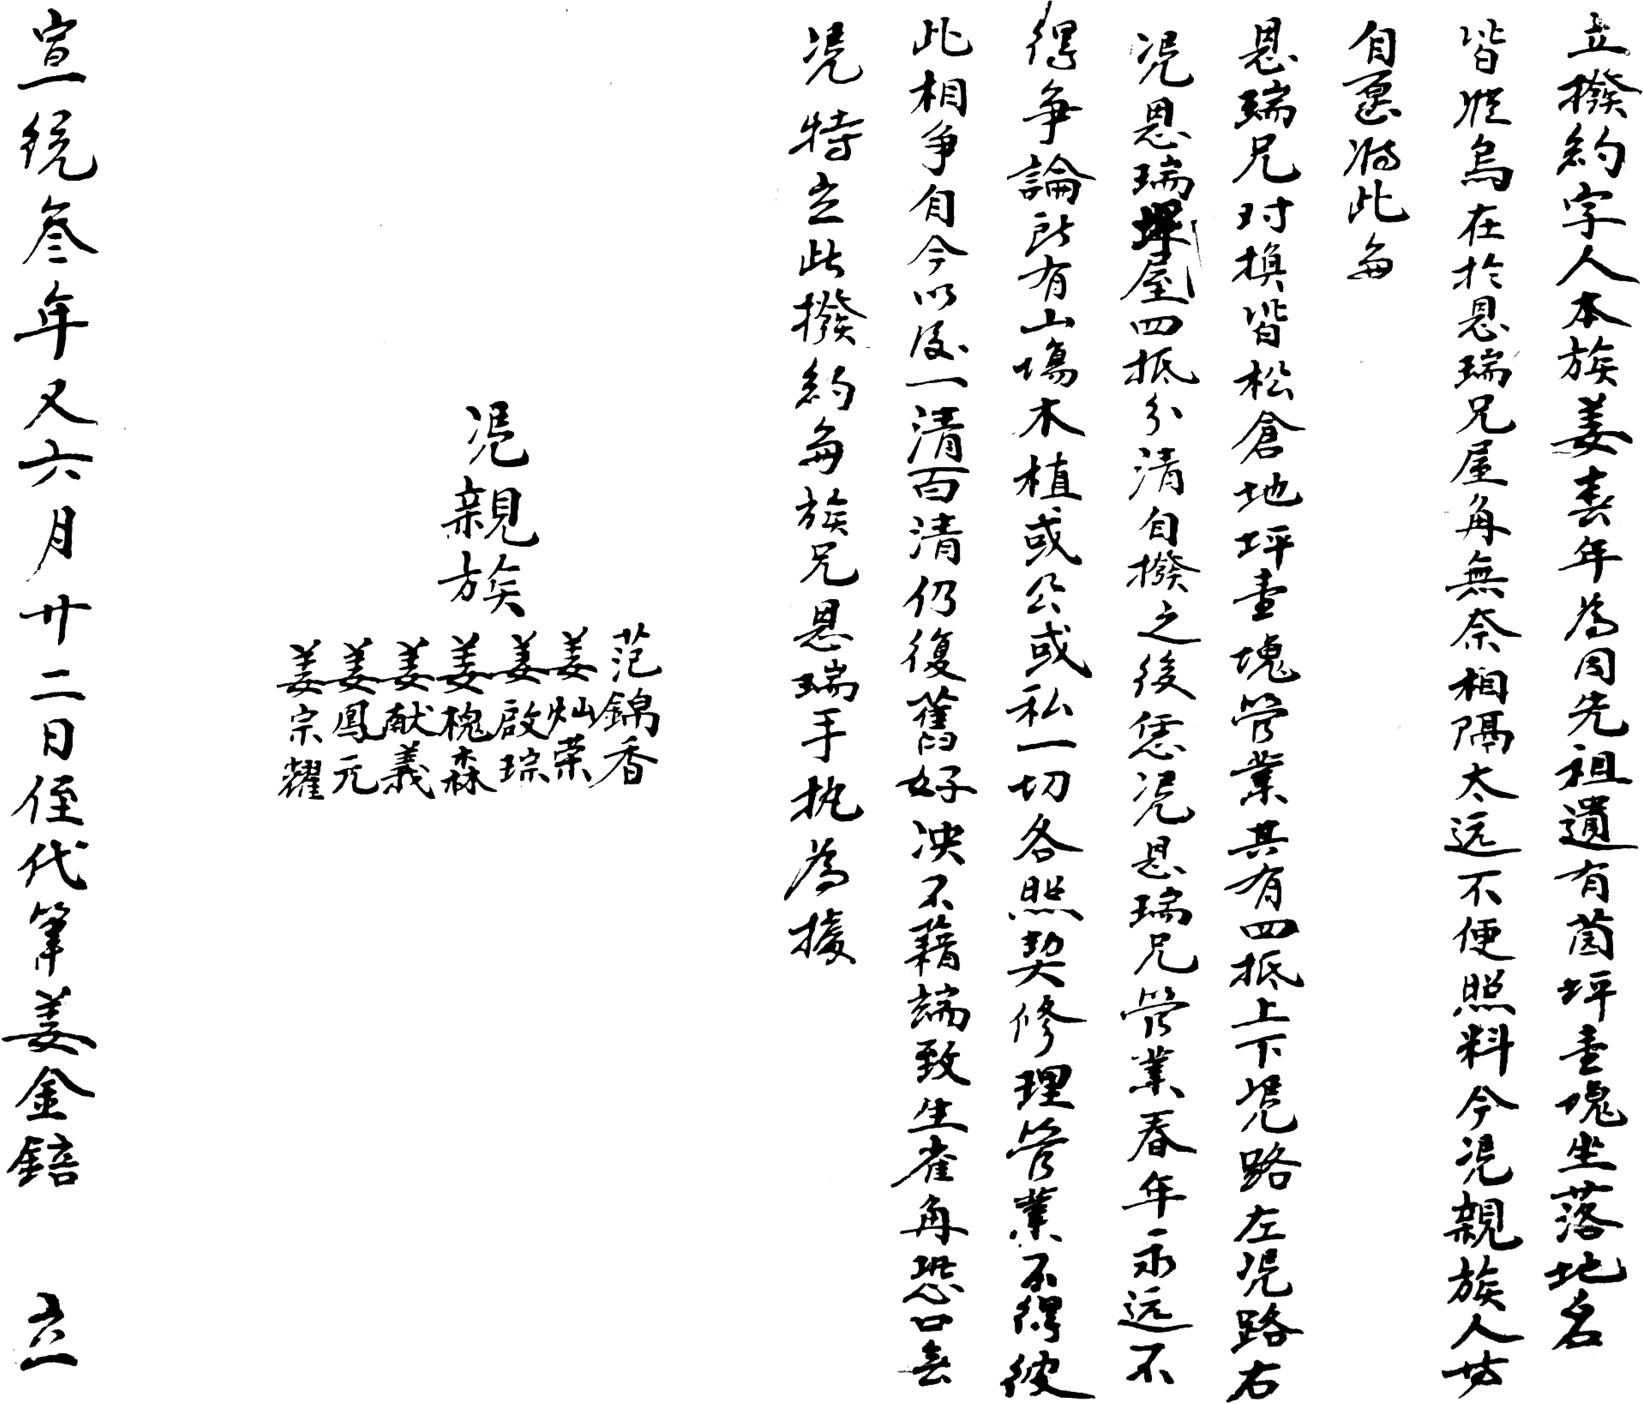 立撥約字人本族姜春年為因先祖遺有茵坪壹塊坐落地名
皆從烏在於恩瑞兄屋角無奈相隔太远不便照料今凭親族人坊
自愿將此與
恩瑞兄对换皆松倉地坪壹塊管業其有四抵上下凭路左凭路右
凭恩瑞坪屋四抵分清自撥之後恁凭恩瑞兄管業春年永远不
得争論所有山塲木植或公或私一切各照契修理管業不得彼
此相争自今以後一清百清仍復舊好决不藉端致生雀角恐口無
凭特立此撥約與族兄恩瑞手执為據
凭親族
范錦香
姜灿荣
姜啟琮
姜槐森
姜献義
姜鳳元
姜宗耀
宣統叁年又六月廿二日侄代筆姜金錇 立